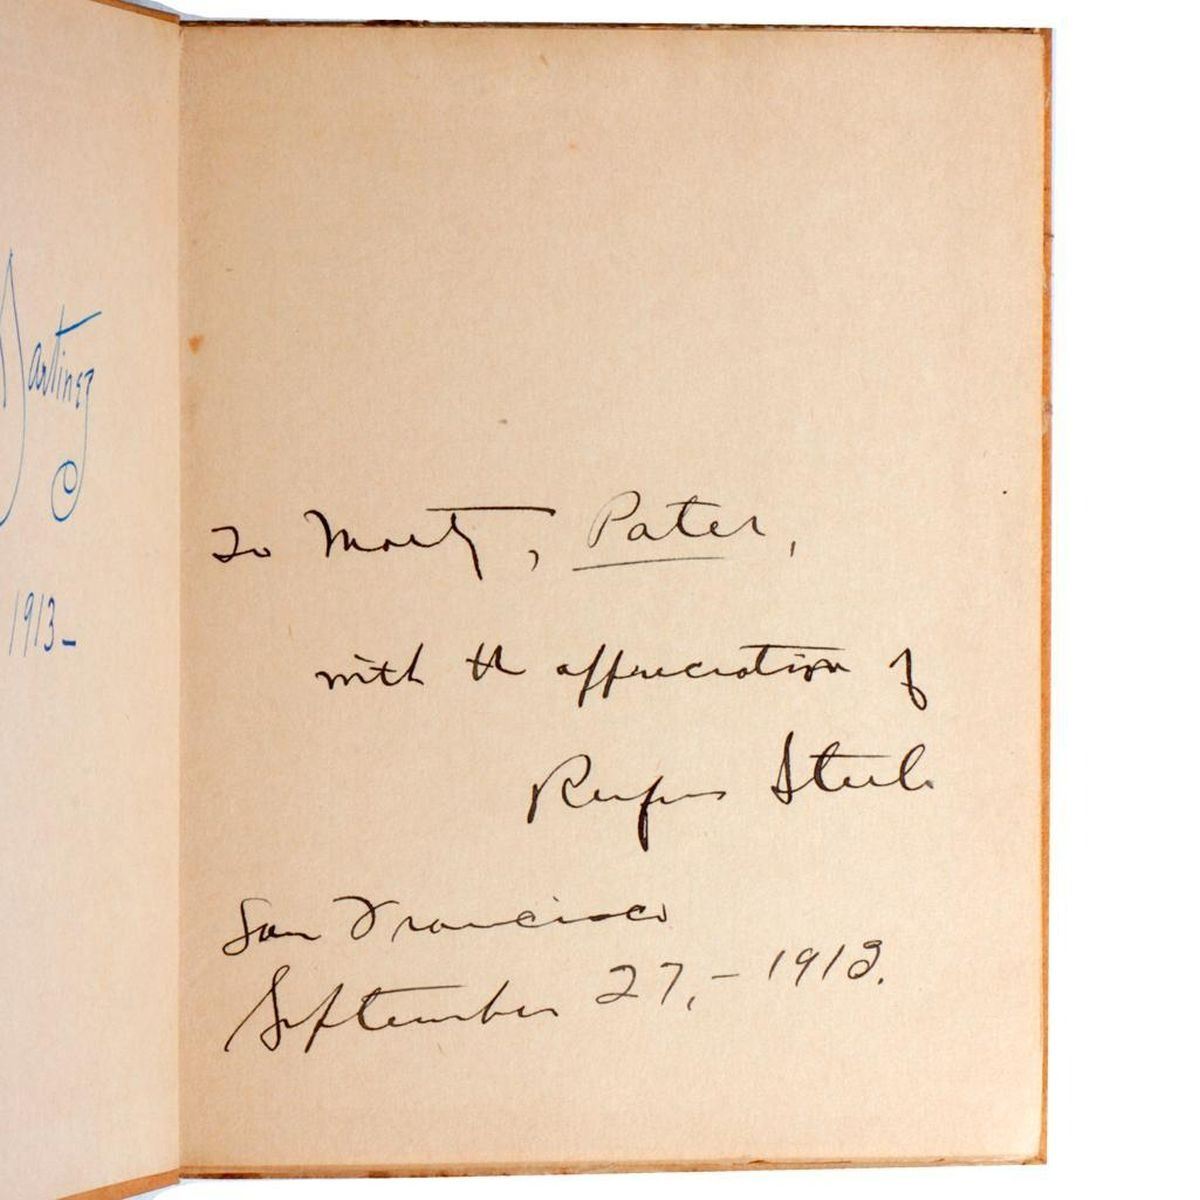 Martinez
1913-
To Marty, Pater,
with the appreciation of
Rufus Steele
San Francisco
September 27,-1913.